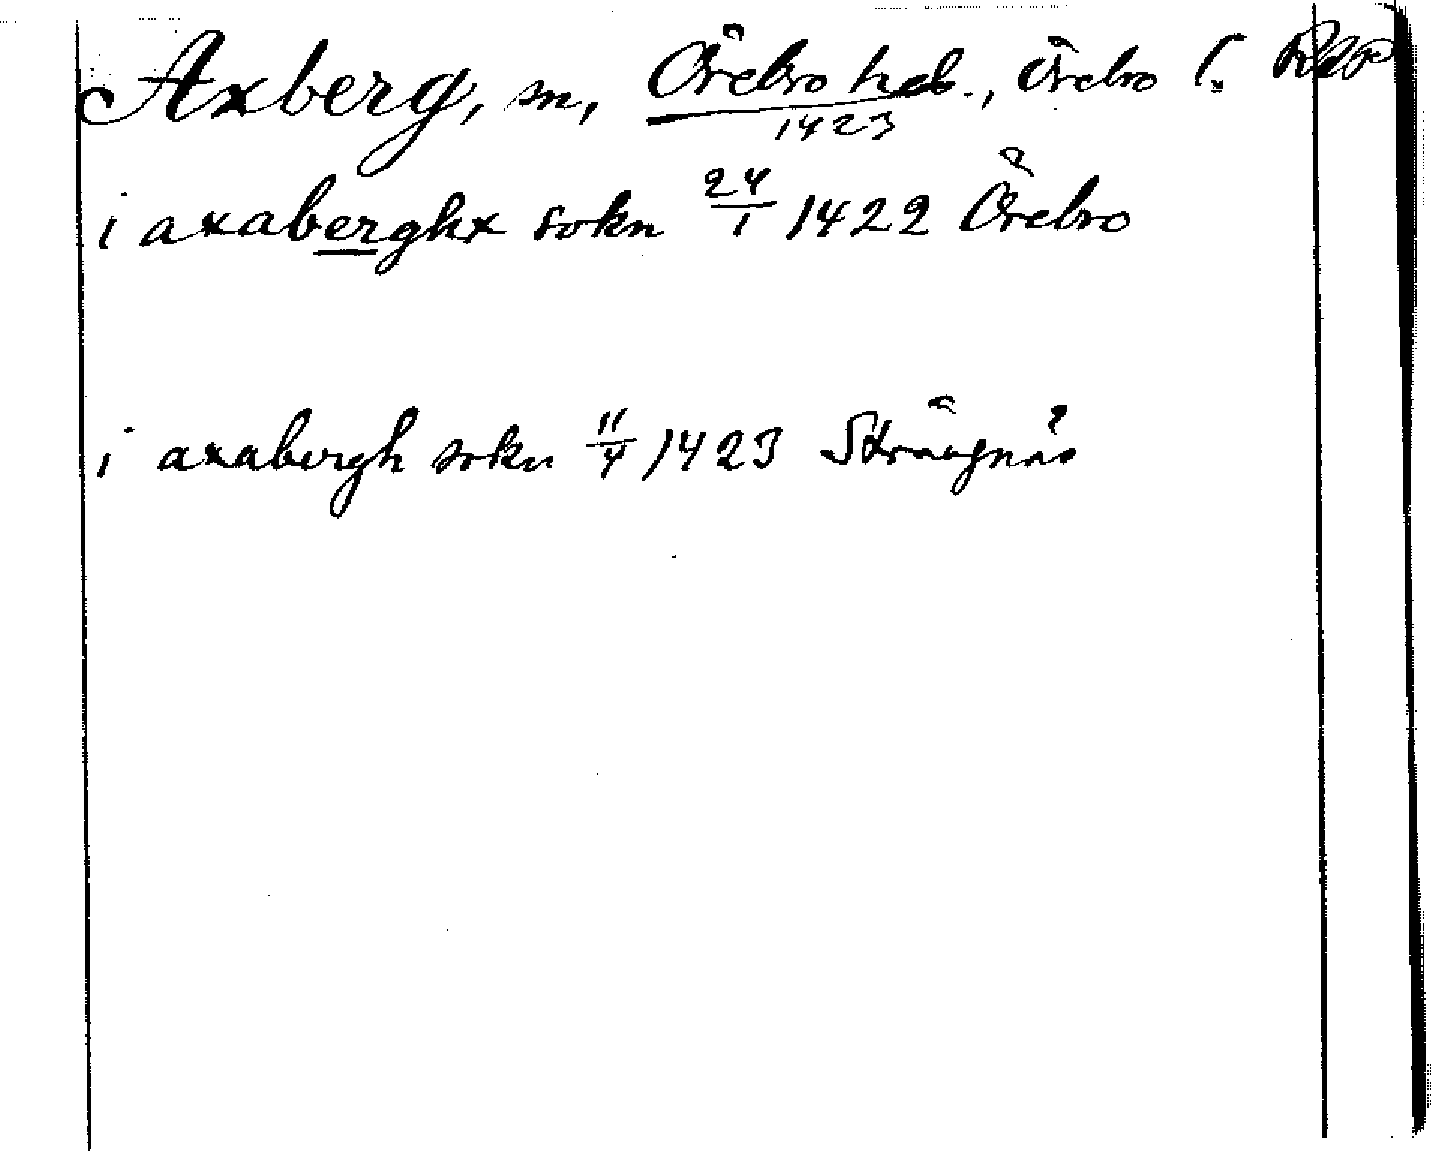 Axberg, sn, Örebro hd., Örebro l. RAp
1423
i axaberghx sokn 24/1 1422 Örebro
i axabergh sokn 11/4 1423 Strängnäs